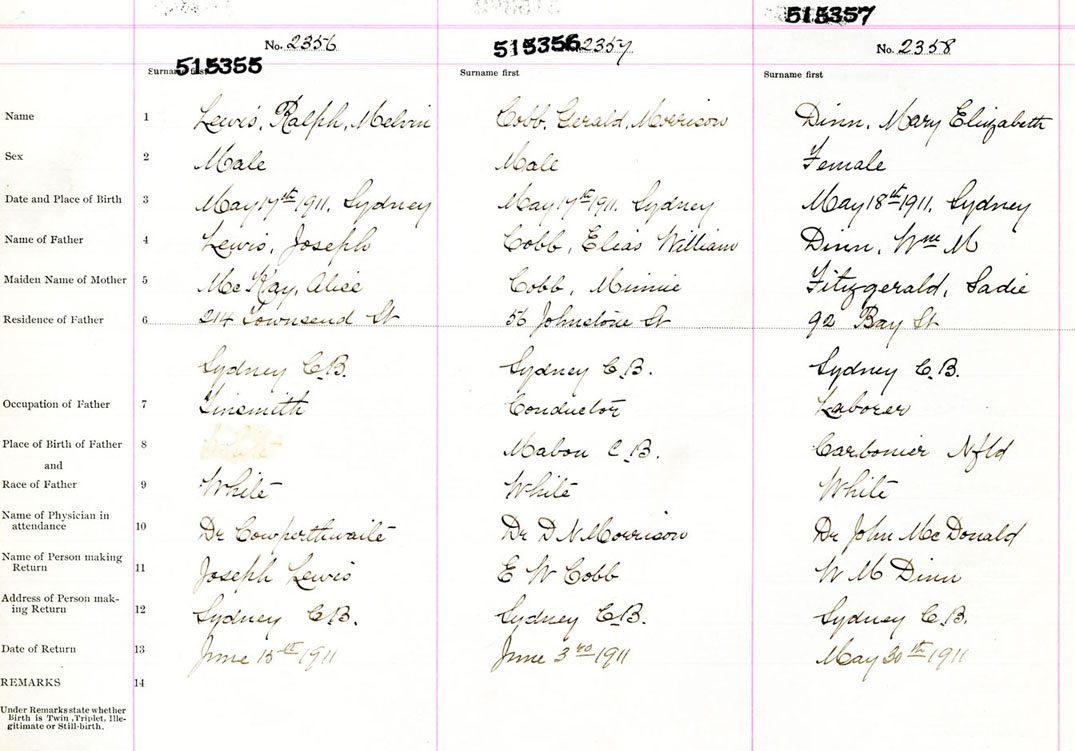 515357
No. 2356 515356 No. 2357 No. 2358
515355
Surname first Surname first Surname first
Name 1 Lewis, Ralph, Melvin Cobb, Gerald, Morrison Dinn, Mary Elizabeth
Sex 2 Male Male Female
Date and Place of Birth 3 May 17th 1911, Sydney May 17th 1911. Sydney May 18th 1911, Sydney
Name of Father 4 Lewis, Joseph Cobb, Elias William Dinn, Wm M
Maiden Name of Mother 5 McKay, Alice Cobb, Minnie Fitzgerald, Sadie
Residence of Father 6 214 Townsend St 56 Johnstone St 92 Bay St
Sydney C.B. Sydney C.B. Sydney C.B.
Occupation of Father 7 Tinsmith Conductor Laborer
Place of Birth of Father 8 Mabou C.B. Carbonier Nfld
and
Race of Father 9 White White White
Name of Physician in
attendance 10 Dr Cowperthwaite Dr D N Morrison Dr John McDonald
Name of Person making
Return 11 Joseph Lewis E W Cobb W M Dinn
Address of Person mak-
ing Return 12 Sydney C.B. Sydney C.B. Sydney C.B.
Date of Return 13 June 15th 1911 June 3rd 1911 May 30th 1911
REMARKS 14
Under Remarks state whether
Birth is Twin, Triplet, Ille-
gitimate or Still-birth.